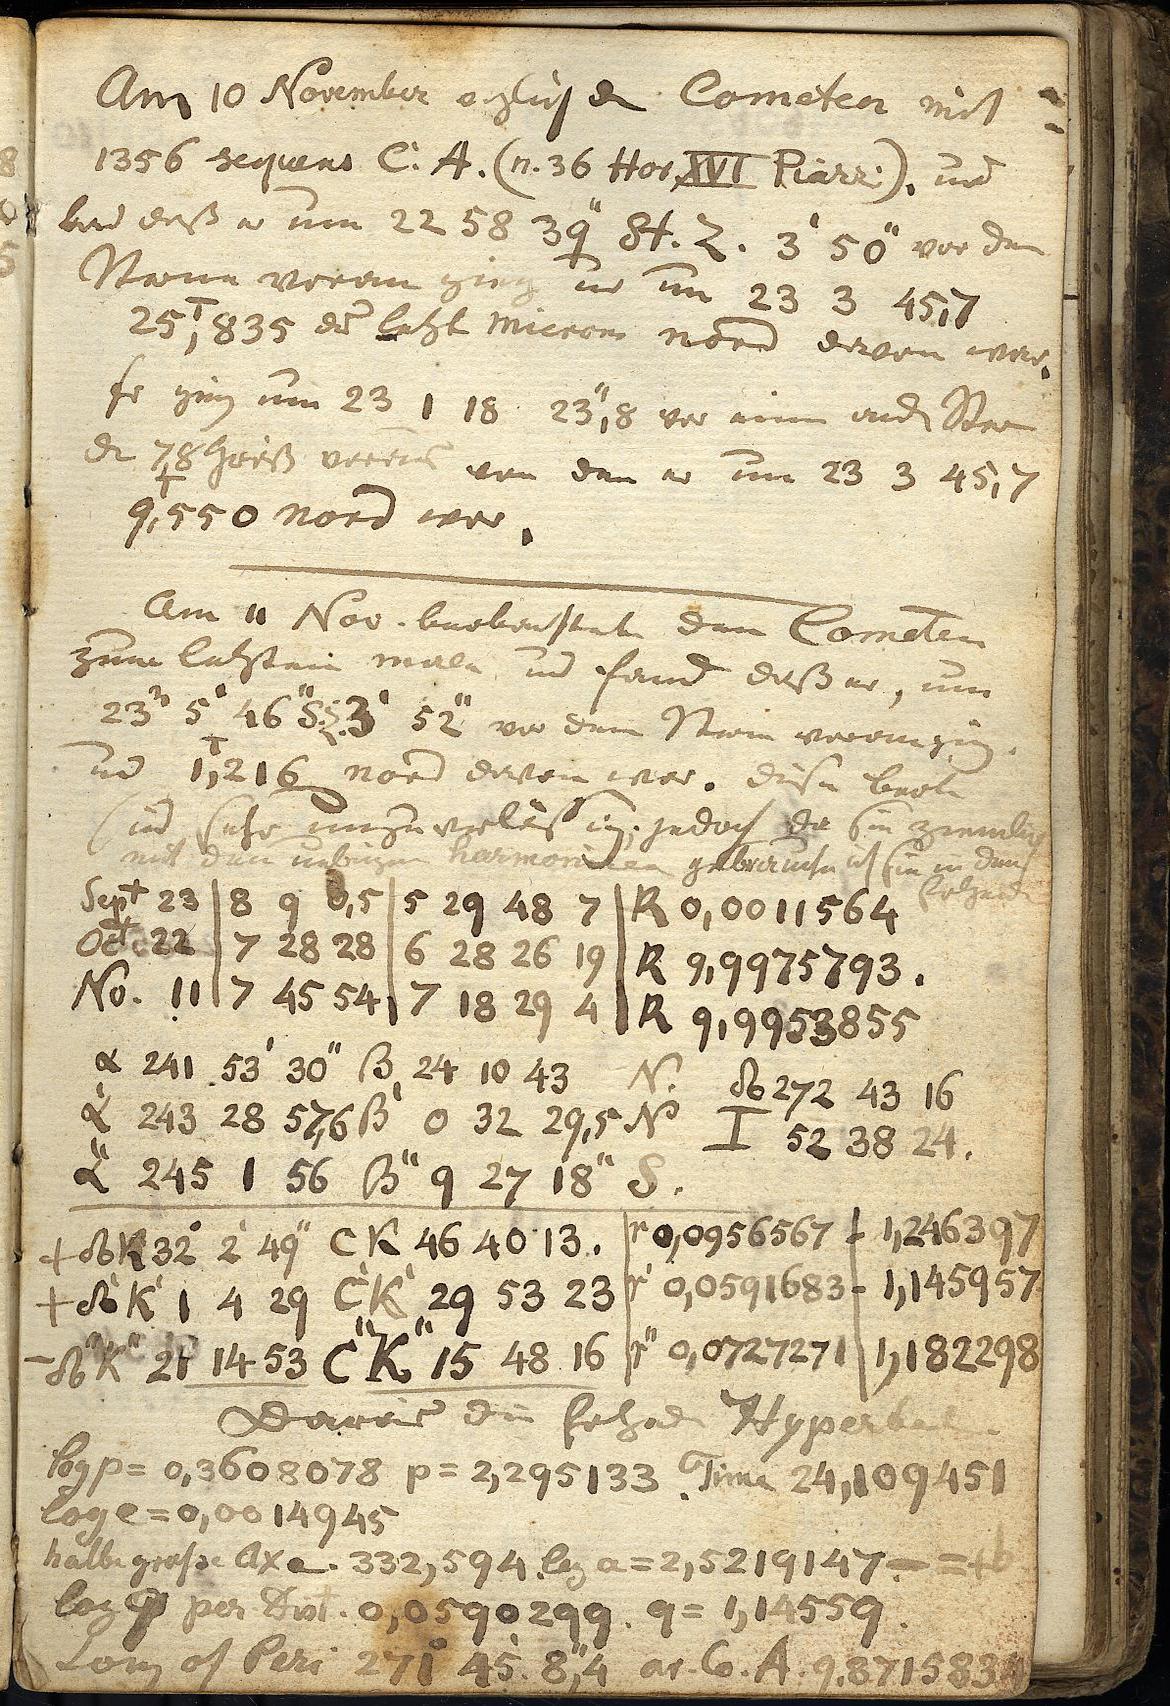 Am 10 November den Cometen mit
1356 sequens C. A. (n. 36 Hor. XVI Piazzi), und
daß er um 22 58 39" St. Z. 3' 50" vor dem
Stern voran ging und um 23 3 45,7
25,835 nord davon war.
er ging um 23 1 18 23",8 vor einem Stern
der 78 von dem er um 23 3 45,7
9,550 nord war.
Am 11 Nov. den Cometen
zum letzten male und fand daß er, um
23h 5' 46" 3' 52" vor dem Stern voran ging.
und 1,216 nord davon war. diese
sind sehr jedoch da sie
mit den übrigen harmoniren gebrauche ich sie in dem
Sept 23 | 8 9 0,5 | 5 29 48 7 | R 0,0011564
Oct 22 | 7 28 28 | 6 28 26 19 | R 9,9975793.
No. 11 | 7 45 54 | 7 18 29 4 | R 9,9953855
α 241 53' 30" β 24 10 43 N. ☊ 272 43 16
α' 243 28 57,6 β' 0 32 29,5 N I 52 38 24.
α" 245 1 56 β" 9 27 18" S.
+ ☊K 32° 2' 49" CK 46 40 13. | r 0,0956567 | 1,246397
+ ☊'K' 1 4 29 C'K' 29 53 23 | r' 0,0591683 - 1,145957
- ☊"K" 21 14 53 C"K" 15 48 16 | r" 0,0727271 | 1,182298
Daraus die folgende Hyperbel
log p = 0,3608078 p = 2,295133. Time 24,109451
log e = 0,0014945
halbe große Axe. 332,594. log a = 2,5219147
log per Dist. 0,0590299. q = 1,14559
Long of Peri 271° 45' 8",4 ar. C. A. 9,871583